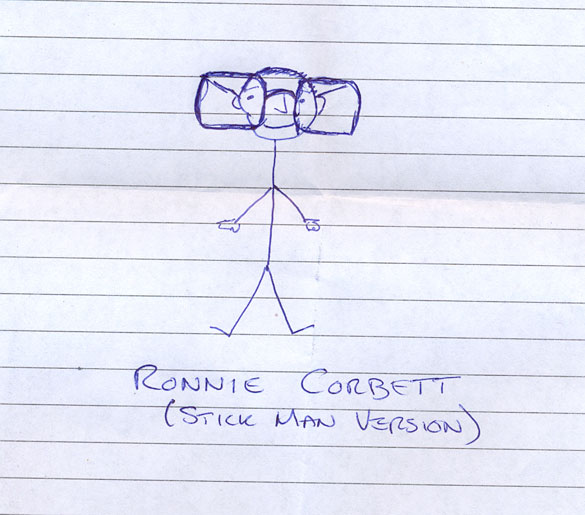 RONNIE CORBETT
(STICK MAN VERSION)